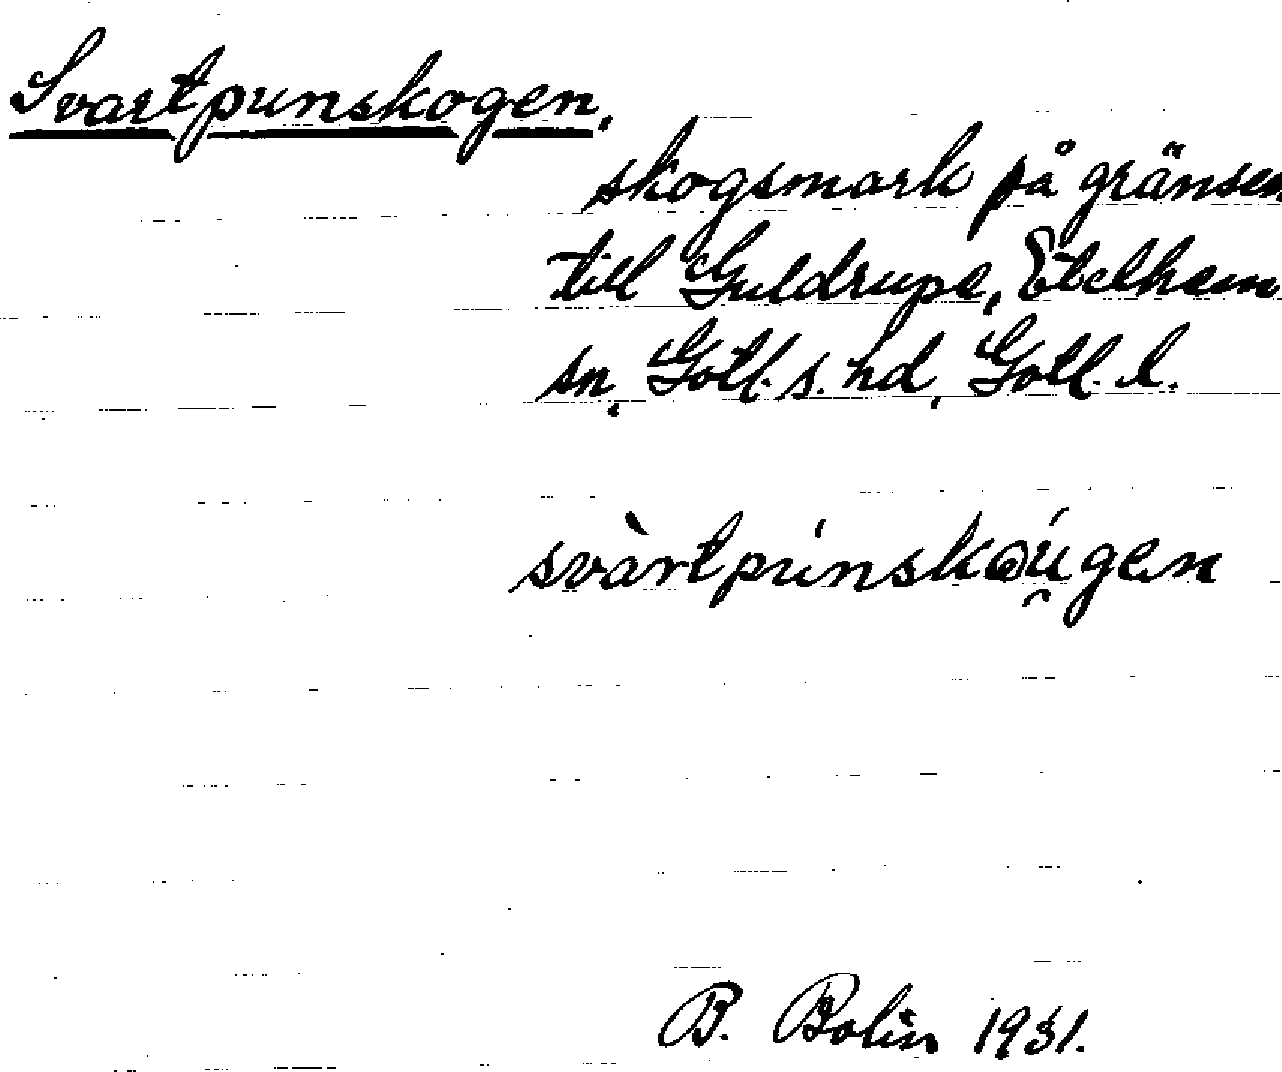 Svartpunskogen.
skogsmark på gränsen
till Guldrupe, Etelhem
sn, Gotl. s. hd, Gotl. l.
svàrtpúnskɷú̯gen
B. Bolin 1931.